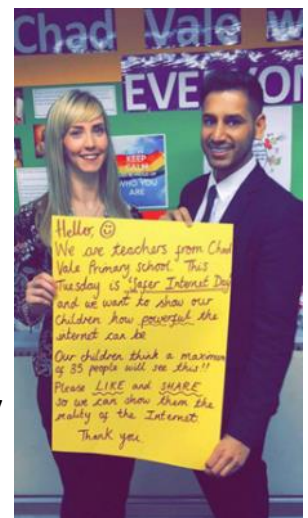 Chad Vale W
EVERYON
KEEP
CALM
WHO YOU
ARE
Hello, ☺
We are teachers from Chad
Vale Primary school. This
Tuesday is 'Safer Internet Day'
and we want to show our
children how powerful the
internet can be
Our children think a maximum
of 35 people will see this!!
Please LIKE and SHARE
so we can show them the
reality of the Internet.
Thank you.